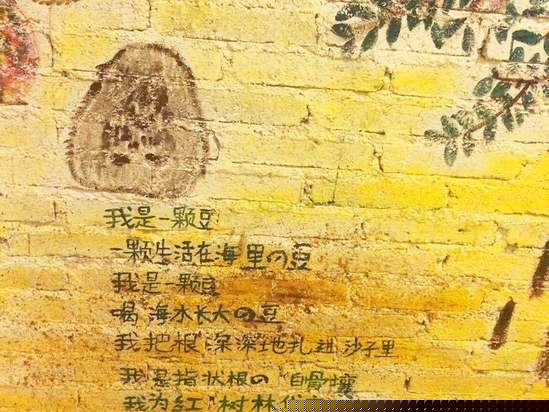 我是一颗豆
一颗生活在海里の豆
我是一颗豆
喝海水长大の豆
我把根深深地扎进沙子里
我是指状根の"自骨壤
我为红树林